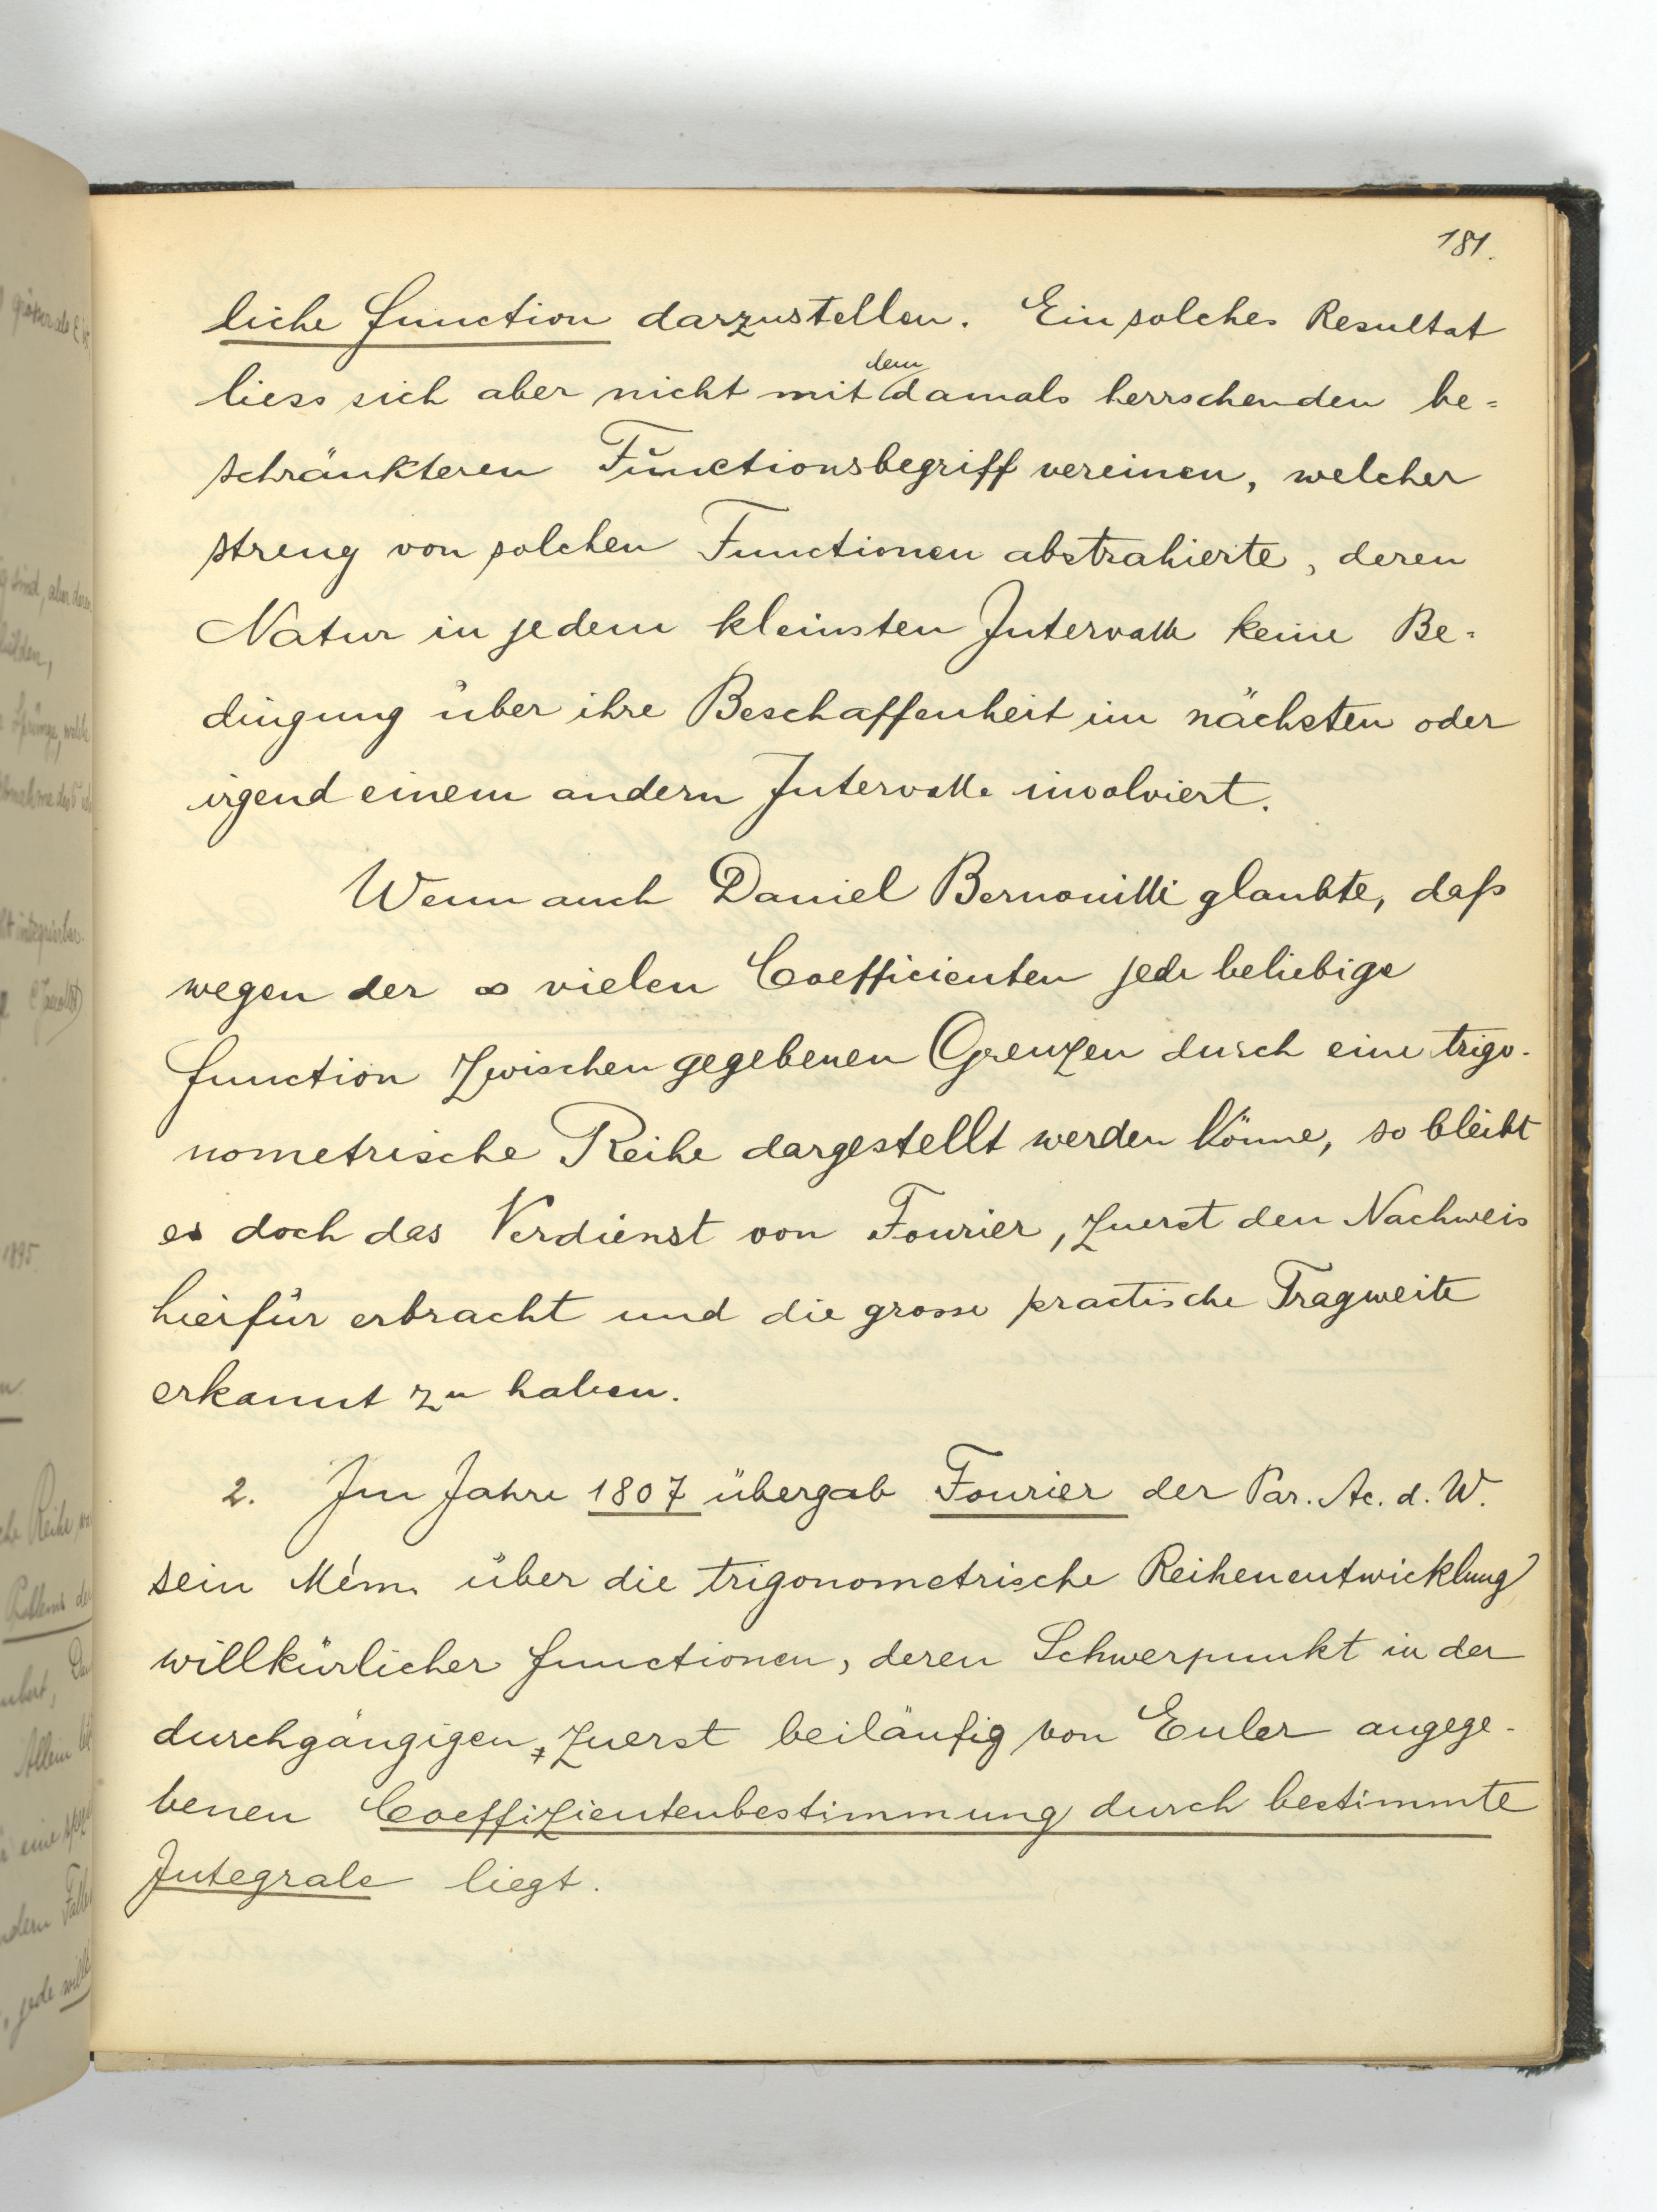 181.
liche Function darzustellen. Ein solches Resultat
dem
liess sich aber nicht mit damals herrschenden be=
schränkteren Functionsbegriff vereinen, welcher
streng von solchen Functionen abstrahierte, deren
Natur in jedem kleinsten Intervalle keine Be=
dingung über ihre Beschaffenheit im nächsten oder
irgend einem andern Intervalle involviert.
Wenn auch Daniel Bernouilli glaubte, daß
wegen der ∞ vielen Coefficienten jede beliebige
Function zwischen gegebenen Grenzen durch eine trigo-
nometrische Reihe dargestellt werden könne, so bleibt
es doch das Verdienst von Fourier, zuerst den Nachweis
hierfür erbracht und die grosse practische Tragweite
erkannt zu haben.
2. Im Jahre 1807 übergab Fourier der Par. Ac. d. W.
sein Mém. über die trigonometrische Reihenentwicklung
willkürlicher Functionen, deren Schwerpunkt in der
durchgängigen, zuerst beiläufig von Euler angege-
benen Coeffizientenbestimmung durch bestimmte
Integrale liegt.